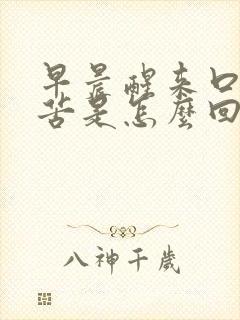 早晨醒来口
苦是怎麼回
八神千歲